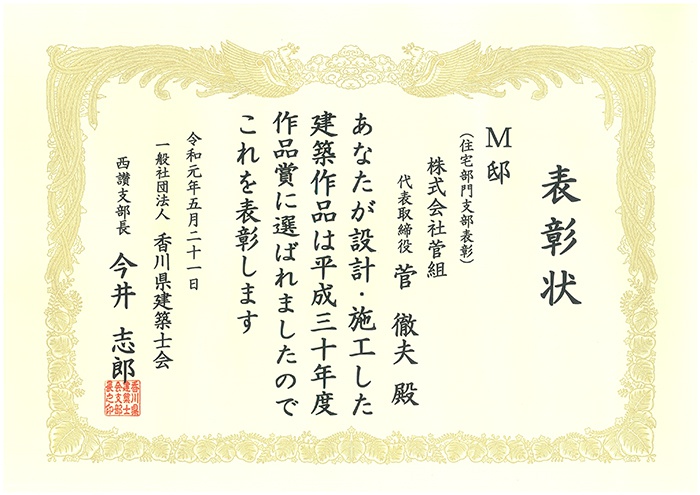 表彰状
M邸
（住宅部門支部表彰）
株式会社菅組
代表取締役 菅 徹夫 殿
あなたが設計・施工した
建築作品は平成三十年度
作品賞に選ばれましたので
これを表彰します
令和元年五月二十一日
一般社団法人 香川県建築士会
西讃支部長 今井 志郎
香川県
建築士
会支部
長之印